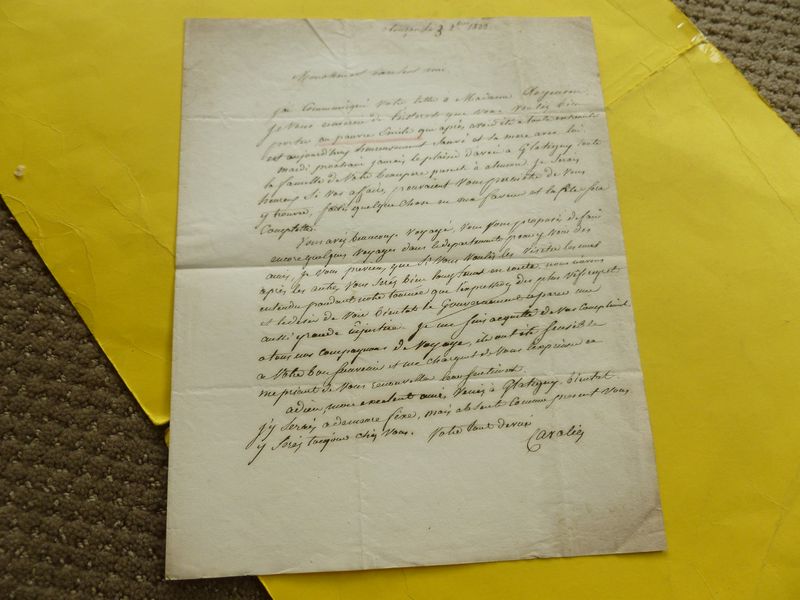 3 8bre 1822
Monsieur
J'ai communiqué votre lettre à Madame
Je vous remercie de l'intérêt que vous voulez bien
porter au pauvre Emile qui après avoir été à toute extrémité
est aujourd'hui heureusement sauvé et sa mère avec lui.
mardi prochain j'aurai le plaisir d'avoir à Glatigny toute
la famille de votre beaupere Je serais
heureux si vos affaires pouvaient vous permettre de vous
y trouver, faites quelque chose en ma faveur et la fête sera
complette.
Vous avez beaucoup voyagé, vous vous proposez de faire
encore quelques voyages dans le département pour y voir des
amis, je vous previens que si vous voulez les visiter les uns
après les autres vous serez bien longtems en route, nous avons
entendu pendant notre tournée que l'expression des plus vifs regrets
et le desir de voir bientot le Gouvernement réparer une
aussi grande injustice. je me suis acquitté de vos compliments
à tous nos compagnons de voyage, ils ont été sensible
à votre bon souvenir et me chargent de vous l'exprimer en
me priant de vous renouveller
adieu, mon excellent ami, venez à Glatigny bientot
j'y serai à demeure fixe, mais absent comme présent vous
y serez toujours chez vous. Votre tout dévoué